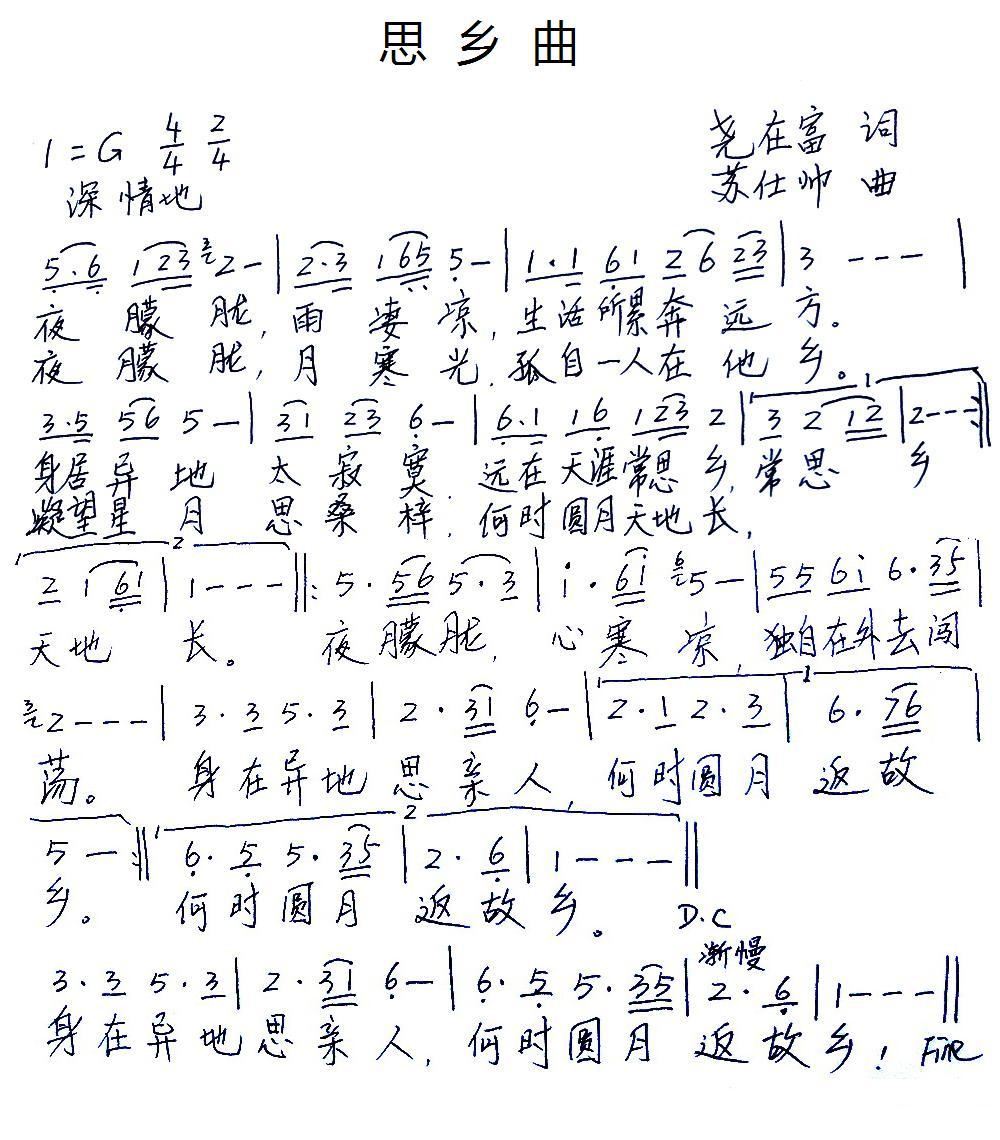 思乡曲
1=G 4/4 2/4
尧在富 词
深情地
苏仕帅 曲
5·6 123 3 2 - | 2·3 165 5 - | 1·1 61 26 23 | 3 - - - |
夜朦胧,雨凄凉,生活所累奔远方。
夜朦胧,月寒光,孤自一人在他乡。
1
3·5 56 5 - | 31 23 6 - | 6·1 16 123 2 | 3 2 12 | 2 - - - :||
身居异地太寂寞,远在天涯常思乡,常思乡
凝望星月思桑梓,何时圆月天地长,
2
2 1 61 | 1 - - - ||: 5·56 5·3 | i·6i 6 5 - | 55 6i 6·35 |
天地长。夜朦胧,心寒凉,独自在外去闯
1
3 2 - - - | 3·3 5·3 | 2·31 6 - | 2·1 2·3 | 6·76 |
荡。身在异地思亲人,何时圆月返故
2
5 - :|| 6·5 5·35 | 2·6 | 1 - - - ||
乡。何时圆月返故乡。 D.C
渐慢
3·3 5·3 | 2·31 6 - | 6·5 5·35 | 2·6 | 1 - - - ||
身在异地思亲人,何时圆月返故乡! Fine